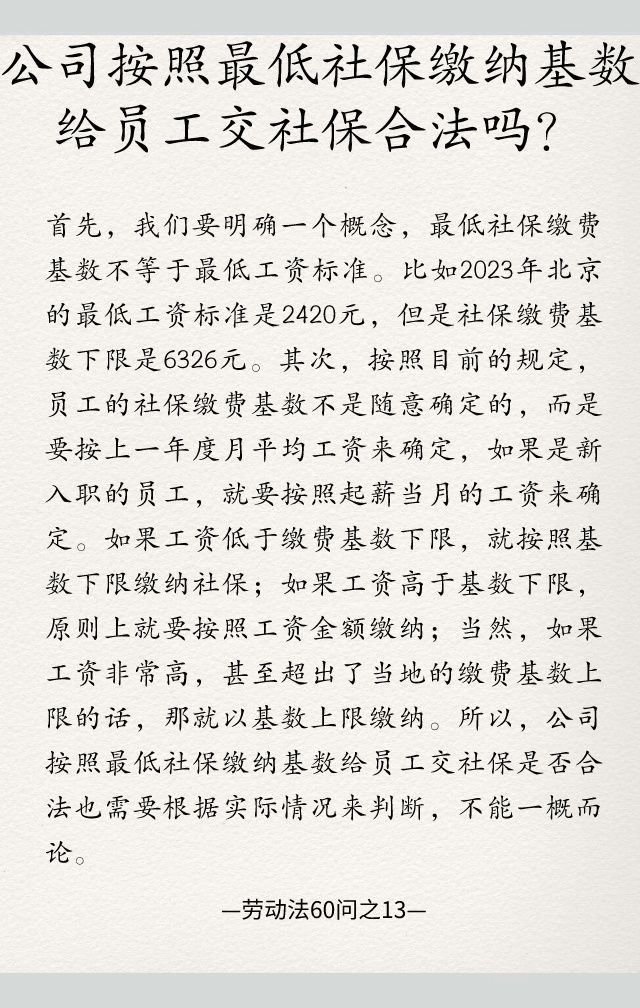 公司按照最低社保缴纳基数
给员工交社保合法吗？
首先，我们要明确一个概念，最低社保缴费
基数不等于最低工资标准。比如2023年北京
的最低工资标准是2420元，但是社保缴费基
数下限是6326元。其次，按照目前的规定，
员工的社保缴费基数不是随意确定的，而是
要按上一年度月平均工资来确定，如果是新
入职的员工，就要按照起薪当月的工资来确
定。如果工资低于缴费基数下限，就按照基
数下限缴纳社保；如果工资高于基数下限，
原则上就要按照工资金额缴纳；当然，如果
工资非常高，甚至超出了当地的缴费基数上
限的话，那就以基数上限缴纳。所以，公司
按照最低社保缴纳基数给员工交社保是否合
法也需要根据实际情况来判断，不能一概而
论。
—劳动法60问之13—